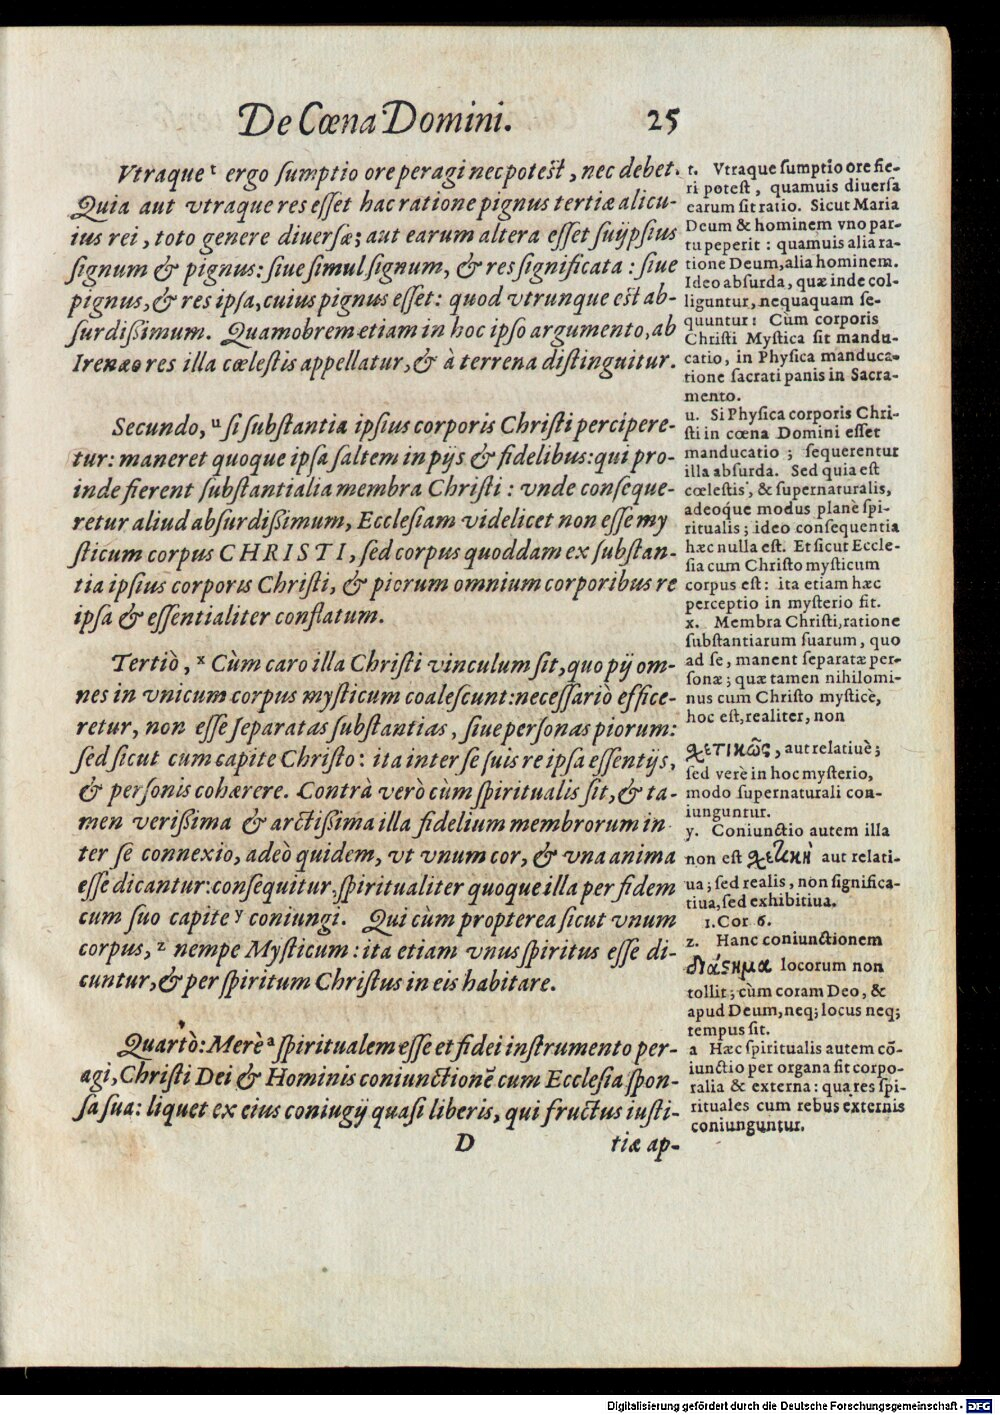 De Cœna Domini. 25
Vtraque t ergo ſumptio ore peragi nec poteſt, nec debet.
Quia aut vtraque res eſſet hac ratione pignus tertiæ alicu-
ius rei, toto genere diuerſæ; aut earum altera eſſet ſuijpſius
ſignum & pignus: ſiue ſimul ſignum, & res ſignificata: ſiue
pignus, & res ipſa, cuius pignus eſſet: quod vtrunque eſt ab-
ſurdißimum. Quamobrem etiam in hoc ipſo argumento, ab
Irenæo res illa cœleſtis appellatur, & à terrena diſtinguitur.
Secundo, u ſi ſubſtantia ipſius corporis Chriſti percipere-
tur: maneret quoque ipſa ſaltem in pijs & fidelibus: qui pro-
inde fierent ſubſtantialia membra Chriſti: vnde conſeque-
retur aliud abſurdißimum, Eccleſiam videlicet non eſſe my
ſticum corpus CHRISTI, ſed corpus quoddam ex ſubſtan-
tia ipſius corporis Chriſti, & piorum omnium corporibus re
ipſa & eſſentialiter conflatum.
Tertiò, x Cùm caro illa Chriſti vinculum ſit, quo pij om-
nes in vnicum corpus myſticum coaleſcunt: neceſſariò effice-
retur, non eſſe ſeparatas ſubſtantias, ſiue perſonas piorum:
ſed ſicut cum capite Chriſto: ita inter ſe ſuis re ipſa eſſentijs,
& perſonis cohærere. Contrà verò cùm ſpiritualis ſit, & ta-
men verißima & arctißima illa fidelium membrorum in
ter ſe connexio, adeò quidem, vt vnum cor, & vna anima
eſſe dicantur: conſequitur, ſpiritualiter quoque illa per fidem
cum ſuo capite y coniungi. Qui cùm propterea ſicut vnum
corpus, z nempe Myſticum: ita etiam vnus ſpiritus eſſe di-
cuntur, & per ſpiritum Chriſtus in eis habitare.
Quartò: Merè a ſpiritualem eſſe et fidei inſtrumento per-
agi, Chriſti Dei & Hominis coniunctionē cum Eccleſia ſpon-
ſa ſua: liquet ex eius coniugij quaſi liberis, qui fructus iuſti-
D tiæ ap-
t. Vtraque ſumptio ore fie-
ri poteſt, quamuis diuerſa
earum ſit ratio. Sicut Maria
Deum & hominem vno par-
tu peperit: quamuis alia ra-
tione Deum, alia hominem.
Ideo abſurda, quæ inde col-
liguntur, nequaquam ſe-
quuntur: Cùm corporis
Chriſti Myſtica ſit mandu-
catio, in Phyſica manduca-
tione ſacrati panis in Sacra-
mento.
u. Si Phyſica corporis Chri-
ſti in cœna Domini eſſet
manducatio; ſequerentur
illa abſurda. Sed quia eſt
cœleſtis, & ſupernaturalis,
adeoque modus planè ſpi-
ritualis; ideo conſequentia
hæc nulla eſt. Et ſicut Eccle-
ſia cum Chriſto myſticum
corpus eſt: ita etiam hæc
perceptio in myſterio fit.
x. Membra Chriſti, ratione
ſubſtantiarum ſuarum, quo
ad ſe, manent ſeparatæ per-
ſonæ; quæ tamen nihilomi-
nus cum Chriſto myſticè,
hoc eſt, realiter, non
χετικῶς, aut relatiuè;
ſed verè in hoc myſterio,
modo ſupernaturali con-
iunguntur.
y. Coniunctio autem illa
non eſt χετικὴ aut relati-
ua; ſed realis, non ſignifica-
tiua, ſed exhibitiua.
1. Cor 6.
z. Hanc coniunctionem
διάςημα locorum non
tollit; cùm coram Deo, &
apud Deum, neq; locus neq;
tempus ſit.
a Hæc ſpiritualis autem cō-
iunctio per organa fit corpo-
ralia & externa: qua res ſpi-
rituales cum rebus externis
coniunguntur.
Digitalisierung gefördert durch die Deutsche Forschungsgemeinschaft - DFG